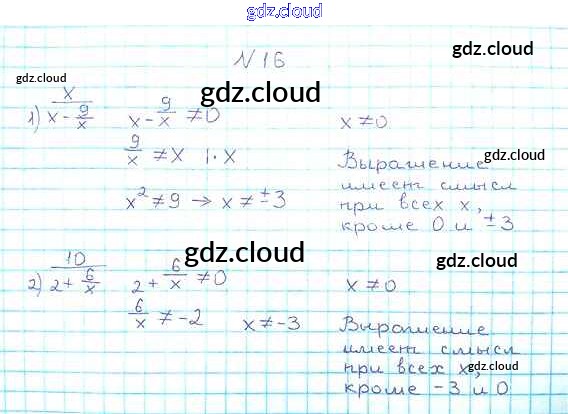 gdz.cloud
N 16
gdz.cloud
gdz.cloud
gdz.cloud
1) x / (x - 9/x)
x - 9/x ≠ 0
x ≠ 0
9/x ≠ x | · x
gdz.cloud
Выражение
имеет смысл
x² ≠ 9 → x ≠ ± 3
при всех x,
gdz.cloud
кроме 0 и ± 3
gdz.cloud
gdz.cloud
2) 10 / (2 + 6/x)
2 + 6/x ≠ 0
x ≠ 0
6/x ≠ -2
x ≠ -3
Выражение
имеет смысл
при всех x,
gdz.cloud
кроме -3 и 0
gdz.cloud